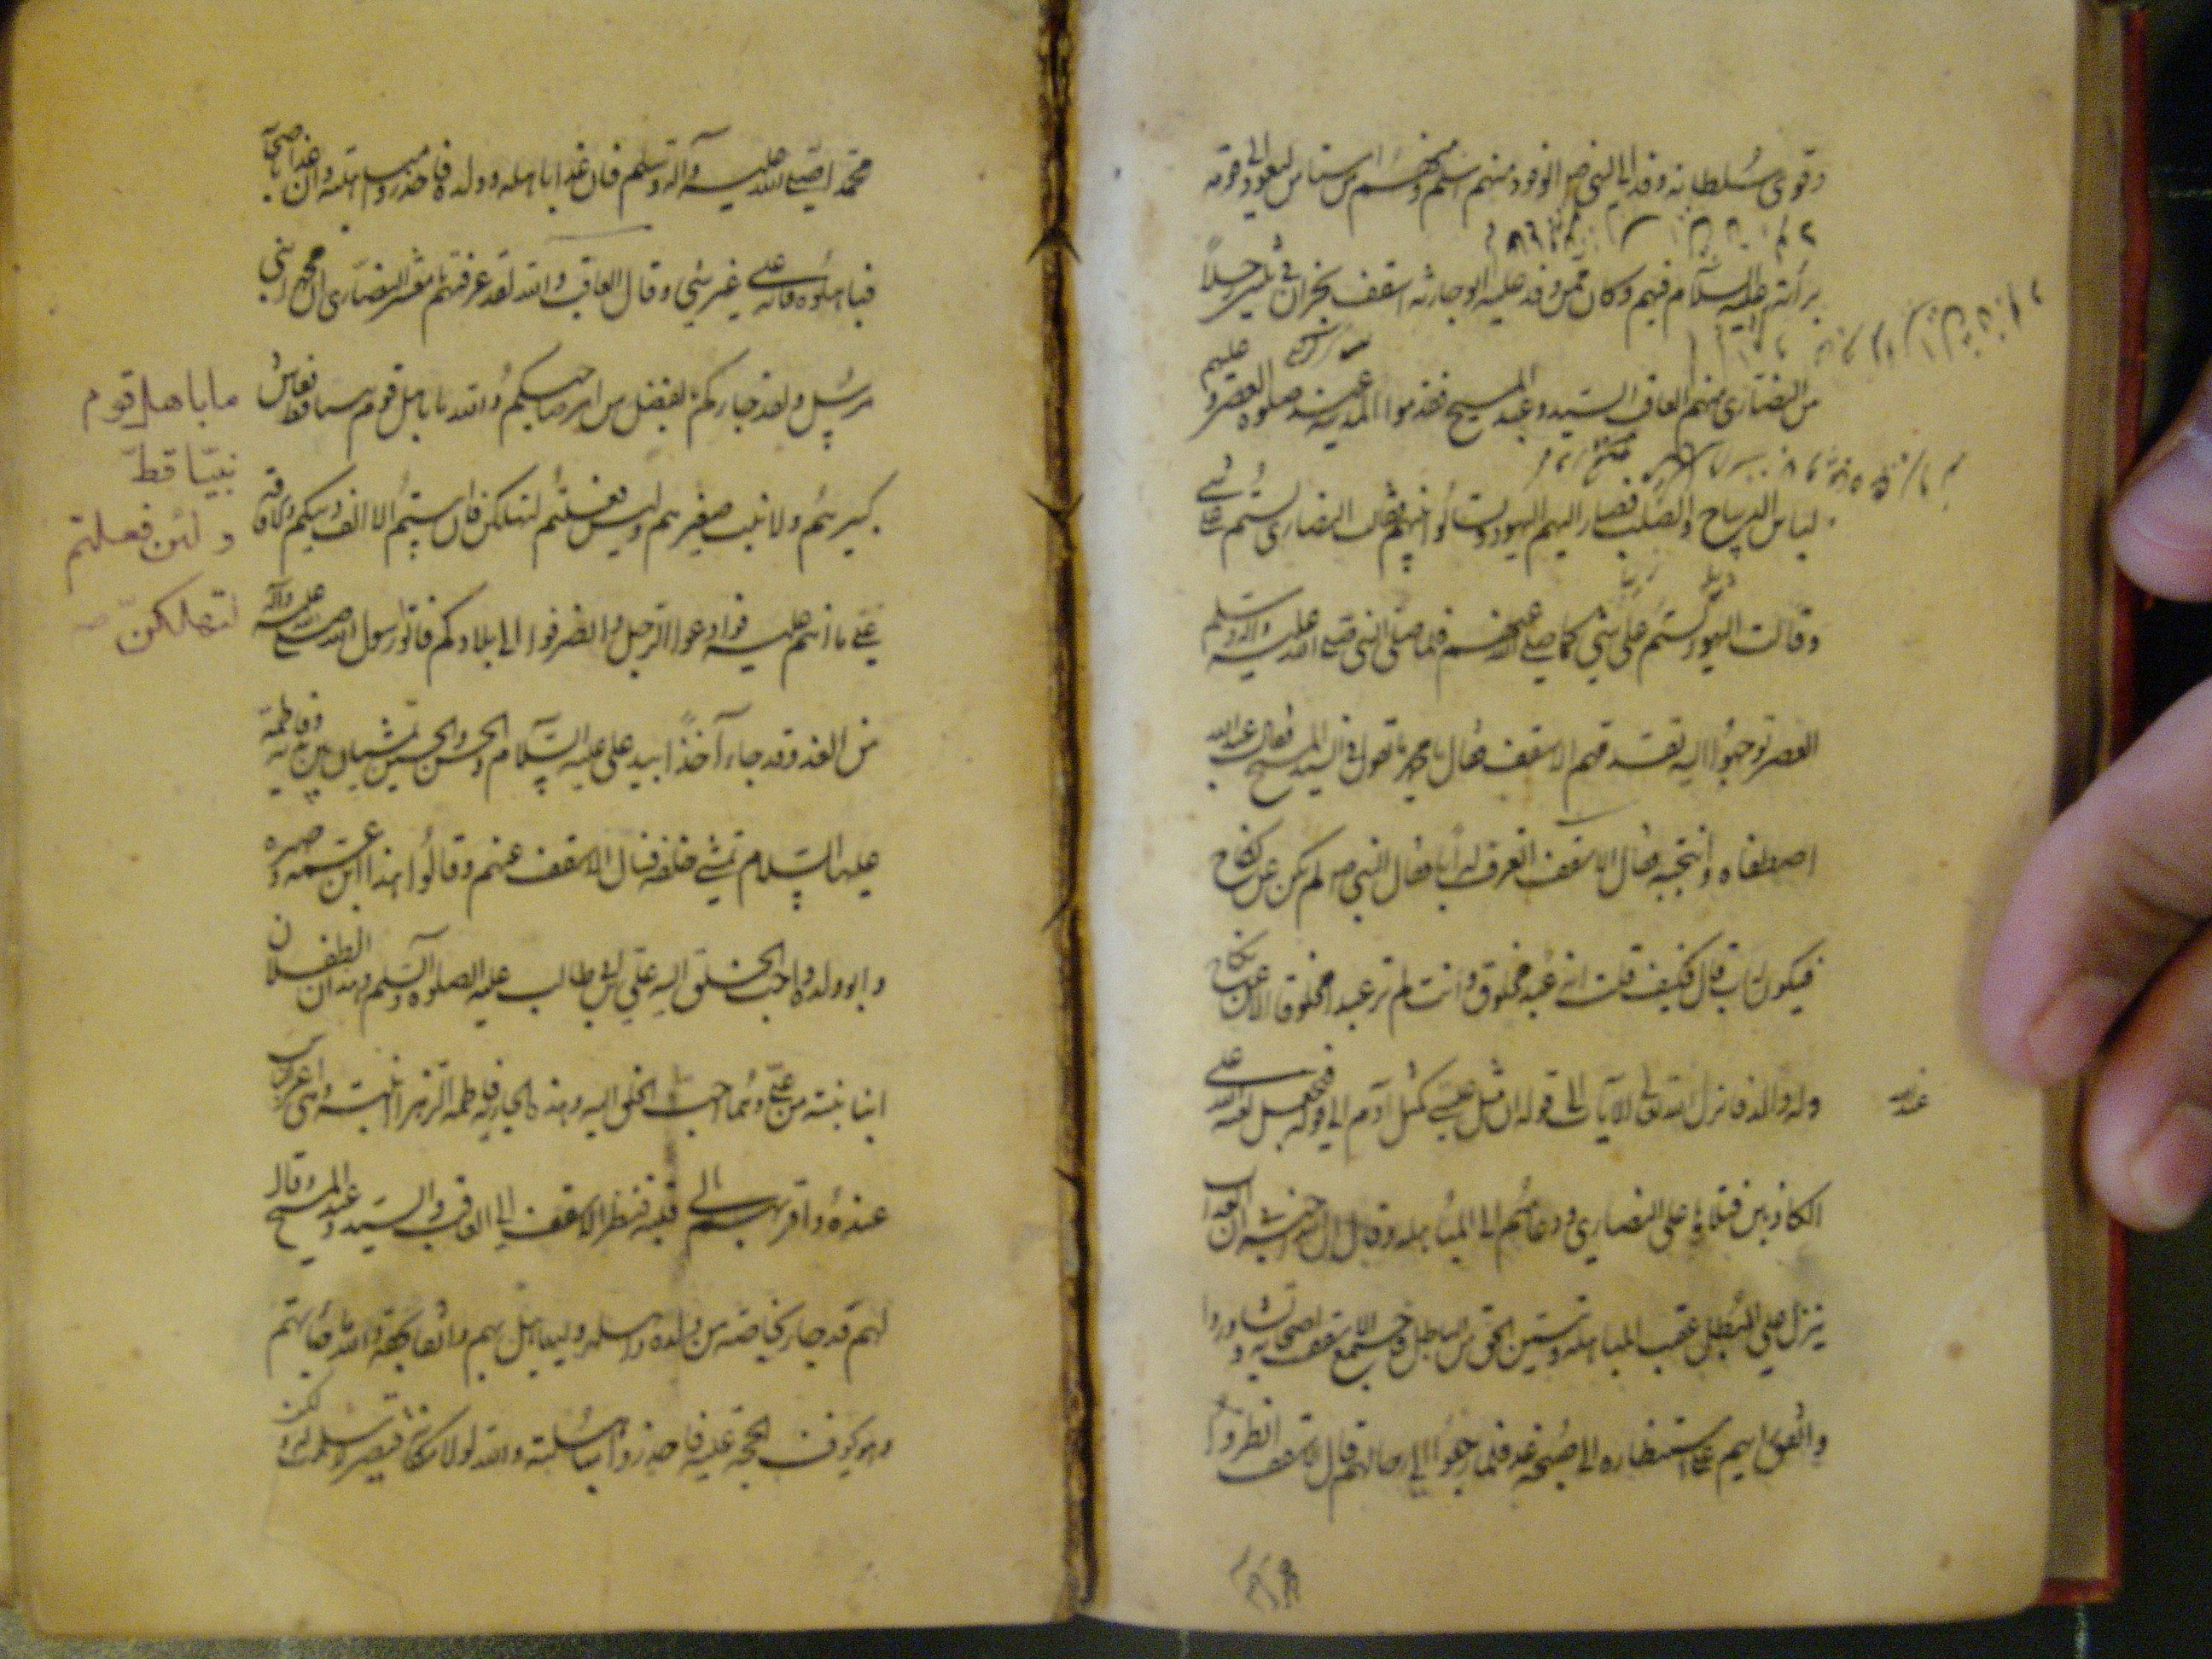 وقوى سلطانه وفد الى النبي ص الوفود منهم اسلم ومنهم من استامن ليعود الى قومه
برأيه عليه السلام فيهم وكان ممن وفد عليه ابو حارثه اسقف نجران في ثلثين رجلاً
من النصارى منهم العاقب والسيد وعبد المسيح فقدموا المدينه عند صلوة العصر وعليهم
لباس الديباج والصلب فصار اليهم اليهود وتسائلوا بينهم فقالت النصارى لستم على شئ
وقالت اليهود لستم على شئ فلما صلى النبي صلى الله عليه وآله وسلم
العصر توجهوا اليه يقدمهم الاسقف فقال يا محمد ما تقول في السيد المسيح فقال عبد الله
اصطفاه وانتجبه فقال الاسقف اتعرف له أباً فقال النبي ص لم يكن عن نكاح
فيكون له اب قال فكيف قلت انه عبد مخلوق وانت لم تر عبدا مخلوقا الا عن نكاح
وله والد فانزل الله تعالى الآيات الى قوله ان مثل عيسى كمثل آدم الى قوله فنجعل لعنة الله على
عند الله
الكاذبين فتلاها على النصارى ودعاهم الى المباهله وقال ان الله اخبرني ان العذاب
ينزل على المبطل عقب المباهله وتبين الحق من الباطل فاجتمع الاسقف واصحابه وتشاوروا
واتفق رايهم على استنظاره الى صبيحة غد فلما رجعوا الى رحالهم قال الاسقف انظروا
محمد صلى الله عليه وآله وسلم فان غدا باهله وولده فاحذروا مباهلته وان غدا باصحابه
فباهلوه فانه على غير شئ وقال العاقب والله لقد عرفتم يا معشر النصارى ان محمدا نبي
مرسل ولقد جاءكم بالفضل من امر صاحبكم والله ما باهل قوم نبيا قط فعاش
كبيرهم ولا نبت صغيرهم ولئن فعلتم لتهلكن فان ابيتم الا الف دينكم والاقامة
على ما انتم عليه فوادعوا الرجل وانصرفوا الى بلادكم فاتوا رسول الله صلى الله عليه وآله
من الغد وقد جاء آخذا بيد علي عليه السلام والحسن والحسين يمشيان بين يديه وفاطمة
عليها السلام تمشي خلفه فسال الاسقف عنهم وقالوا هذا ابن عمه وصهره
وابو ولده واحب الخلق اليه علي بن ابي طالب عليه الصلوة والسلم وهذان الطفلان
ابنا بنته من علي وهما احب الخلق اليه وهذه الجارية فاطمة الزهرا ابنته وهي اعز الناس
عنده واقربهم الى قلبه فنظر الاسقف الى العاقب والسيد وعبد المسيح وقال
لهم قد جاء بخاصته من ولده واهله ليباهل بهم واثقا بحقه والله ما جاء بهم
وهو يتخوف الحجة عليه فاحذروا مباهلته والله لولا مكان قيصر لاسلمت له ولكن
ما باهل قوم
نبيّا قطّ
و لئن فعلتم
لتهلكنّ